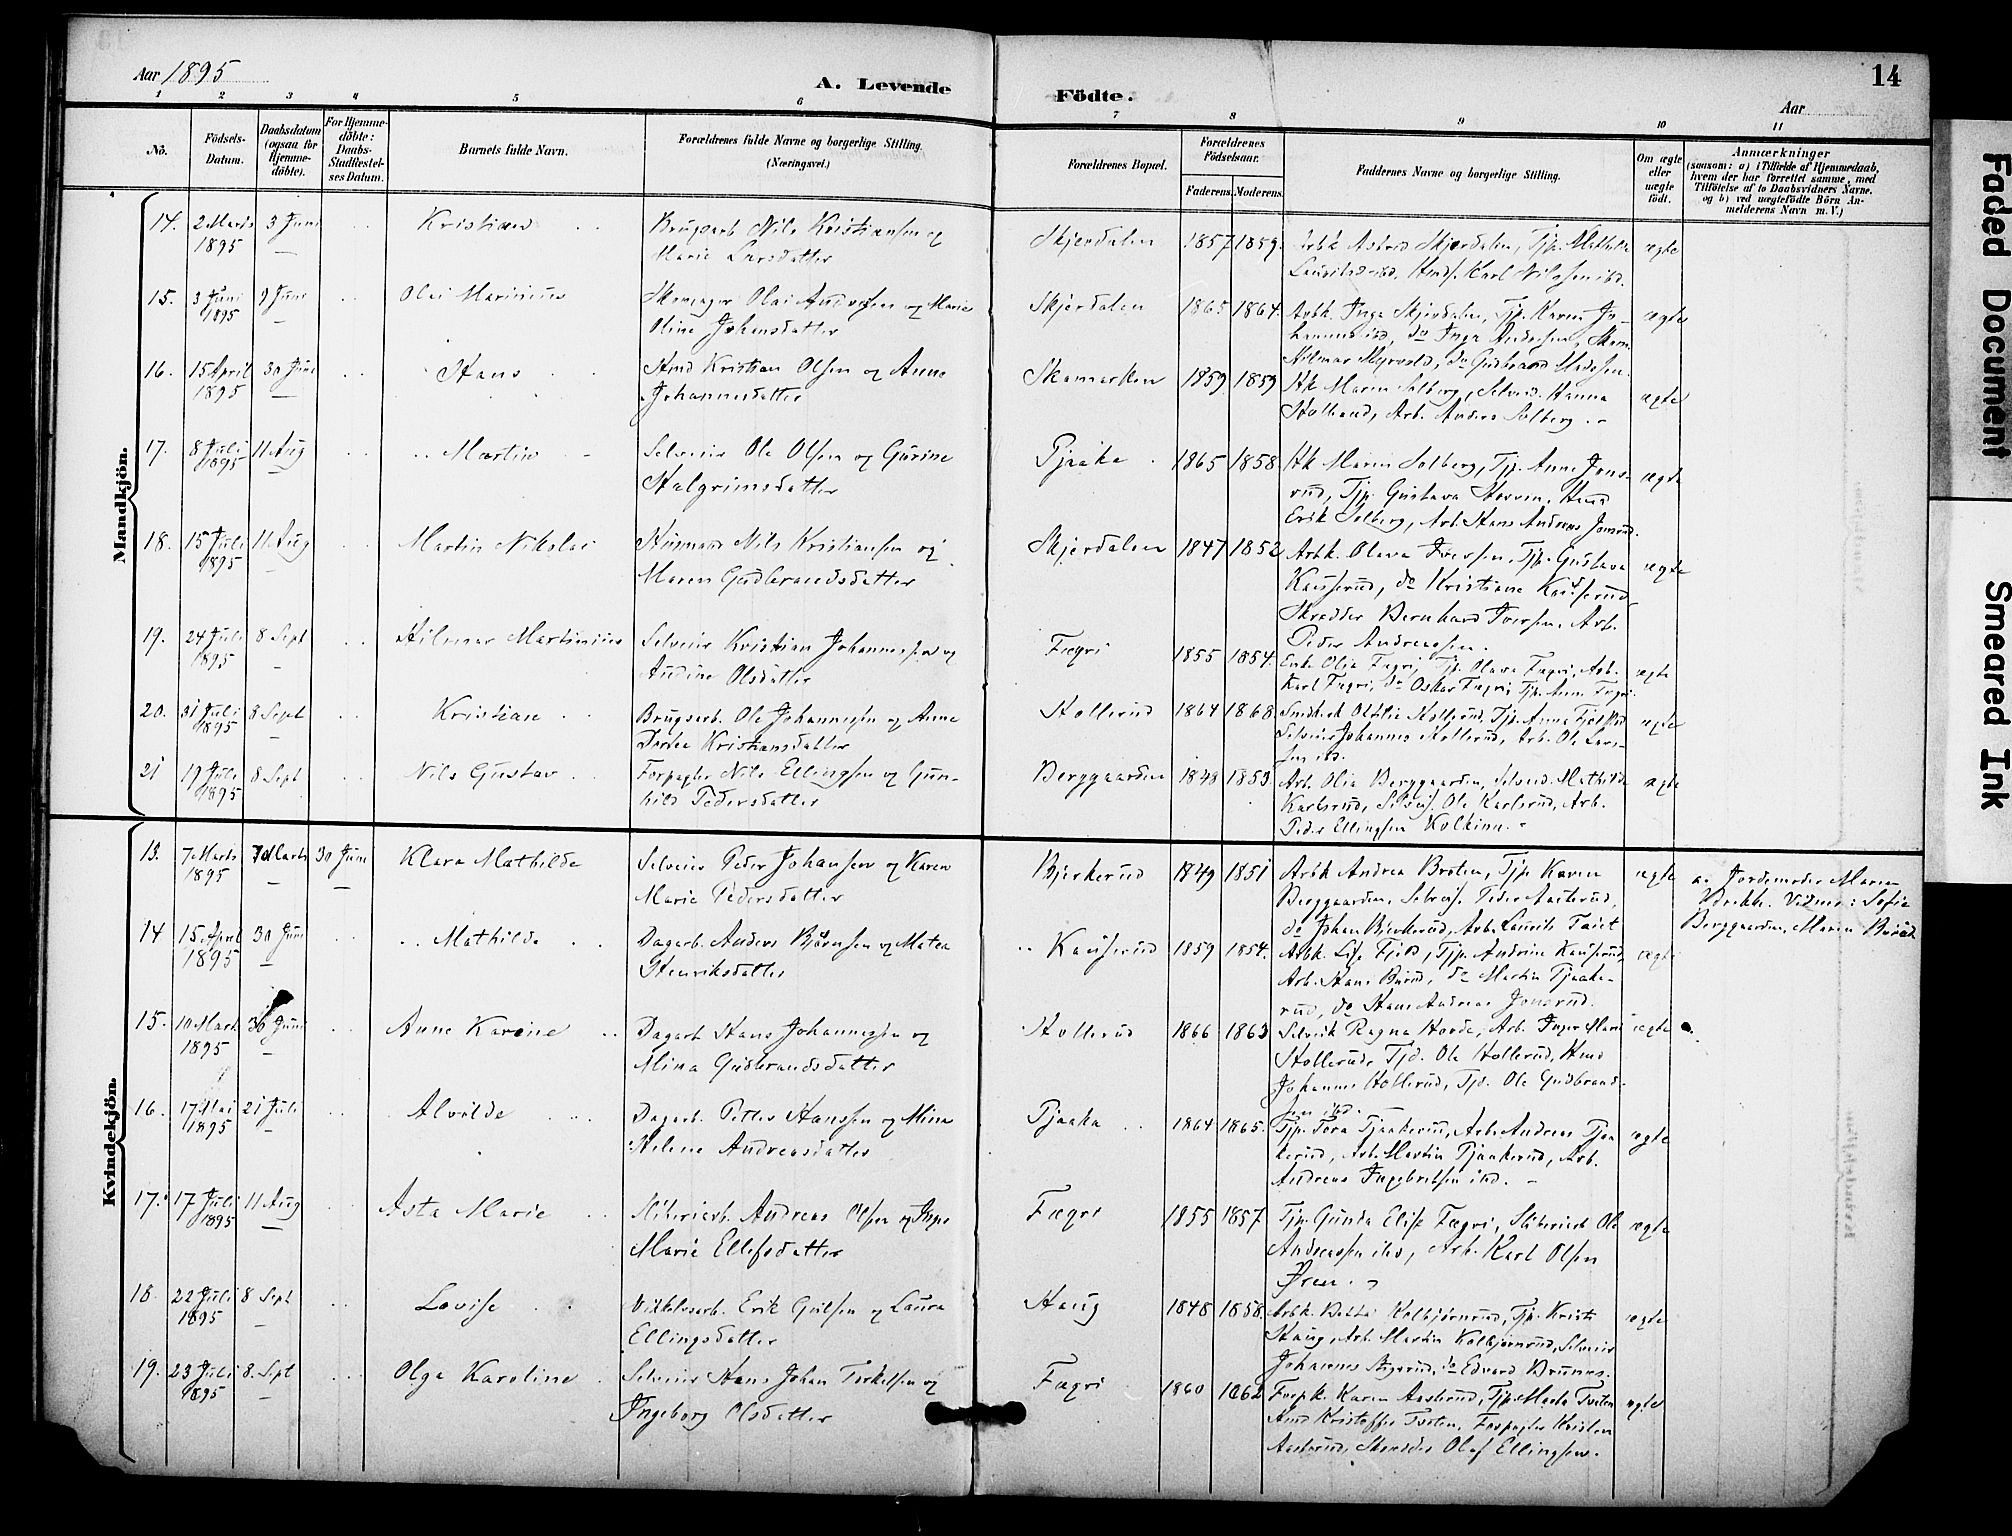 Aar 1895
A. Levende Födte.
14
Aar
Faded Document
Smeared Ink
1 2 3 4 5 6 7 8 9 10 11
No.
Födsels-Datum.
Daabsdatum (ogsaa for Hjemme-döbte).
For Hjemme-döbte: Daabs-Stadfæstel-ses Datum.
Barnets fulde Navn.
Forældrenes fulde Navne og borgerlige Stilling.
(Næringsvei.)
Forældrenes Bopæl.
Forældrenes Födselsaar.
Faderens. Moderens.
Faddernes Navne og borgerlige Stilling.
Om ægte eller uægte födt.
Anmærkninger
(saasom: a) i Tilfælde af Hjemmedaab,
hvem der har forrettet samme, med
Tilföielse af to Daabsvidners Navne.
og b) ved uægtefödte Börn An-
melderens Navn m. V.)
Mandkjön.
14. 2 Marts 1895 3 Juni Kristian Brugsarb. Nils Kristiansen og Marie Larsdatter Skjerdalen 1857 1859. Arbk. Astrid Skjerdalen, Tjp. Mathilde Lauritsd. ibd., Karl Nilssen ibd. ægte
15. 3 Juni 1895 9 Juni Olai Marinius Skomager Olai Andersen og Marie Oline Johansdatter Skjerdalen 1865 1864. Arbk. Inga Skjerdalen, Tjp. Karen Jo-hannesd. ibd, do Inga Andersen, Skom. Hilmar ægte
16. 15 April 1895 30 Juni Hans Hmd Kristian Olsen og Anne Johannesdatter 1859 1859 Hk Maren Solberg, Selveid. Hanna Arb. Anders Solberg. ægte
17. 8 Juli 1895 11 Aug Martin Selveier Ole Olsen og Gurine Halgrimsdatter Pjaaka 1865 1858. Hk Maren Solberg, Tjp. Anne Jons-rud, Tjp. Gustava Hmd Erik Solberg, Arb. Hans Andreas Jonsrud. ægte
18. 15 Juli 1895 11 Aug Martin Nikolai Husmand Nils Kristiansen og Maren Gudbrandsdatter Skjerdalen 1847 1852 Arbk. Olava Iversen, Tjp. Gustava Kauserud, do Kristiane Kauserud, Skredder Bernhard Iversen, Arb. Peder Andreassen. ægte
19. 24 Juli 1895 8 Sept Hilmar Martinius Selveier Kristian Johannessen og Audine Olsdatter Fægri 1855 1854. Enke Olia Fægri, Tjp. Olava Fægri, Arb. Karl Fægri, do Oskar Fægri, Tjp. Anna Fægri ægte
20. 31 Juli 1895 8 Sept Kristian Brugsarb. Ole Johannessen og Anne Dortea Kristiansdatter Hollerud 1864 1868 Hollerud, Tjp. Anna Selveier Johannes Hollerud, Arb. Ole Lars-sen ibd. ægte
21 19 Juli 1895 8 Sept Nils Gustav Forpagter Nils Ellingsen og Gun-hild Pedersdatter Berggaarden 1848 1853 Arb. Olia Berggaarden, Selveid. Mathilde Karlsrud, Selveis. Ole Karlsrud, Arb. Peder Ellingsen Kolkinn. ægte
Kvindekjön.
13. 7 Marts 1895 7 Marts 30 Juni Klara Mathilde Selveier Peder Johansen og Karen Marie Pedersdatter Bjerkerud 1849 1851 Arbk Andrea Braten, Tjp. Karen Berggaarden, Selveis. Peder Aasterud, do Johan Bjerkerud, Arb. Laurits Taiet ægte a. Jordemoder Maren Vidner: Sofie Berggaarden, Maren
14 15 April 1895 30 Juni Mathilde Dagarb. Anders Bjørnsen og Matea Henriksdatter Kauserud 1859 1854. Arbk. Lise Fjeld, Tjp. Andrine Kauserud, Arb. Hans do Martin Pjaake-rud, do Hans Andreas Jonsrud. ægte
15. 10 Marts 1895 30 Juni Anne Karine Dagarb. Hans Johannessen og Mina Gudbrandsdatter Hollerud 1866 1863 Ragna Arb. Inger Marie Hollerud, Tjd. Ole Hollerud, Hmd Johannes Hollerud, Tjd. Ole Gudbrand-sen ibd. ægte
16. 17 Mai 1895 21 Juli Alvilde Dagarb. Petter Hanssen og Mina Helene Andreasdatter Pjaaka 1864 1865. Tjp. Tora Pjaakerud, Arb. Andreas Pjaa-kerud, Arb. Martin Pjaakerud, Arb. Andreas Ingebretsen ibd. ægte
17. 17 Juli 1895 11 Aug Asta Marie Sliberiarb. Andreas Olsen og Marie Ellefsdatter Fægri 1855 1857 Tjp. Gunda Elise Fægri, Sliberiarb. Ole Andreassen ibd, Arb. Karl Olsen Øren. ægte
18. 22 Juli 1895 8 Sept Lovise Erik Gulsen og Laura Ellingsdatter Haug 1848 1858. Arbk. Kolbjørnrud, Tjp. Kristi Haug, Arb. Martin Kolbjørnrud, Selveier Johannes do Edvard ægte
19. 23 Juli 1895 8. Sept Olga Karoline Selveier Hans Johan Torkelsen og Ingeborg Olsdatter Fægri 1860 1862 Forpk. Karen Aasterud, Tjp. Marta Tveten Hmd Kristoffer Tveten, Forpagter Kristen Aasterud, Skredder Olaf Ellingsen. ægte